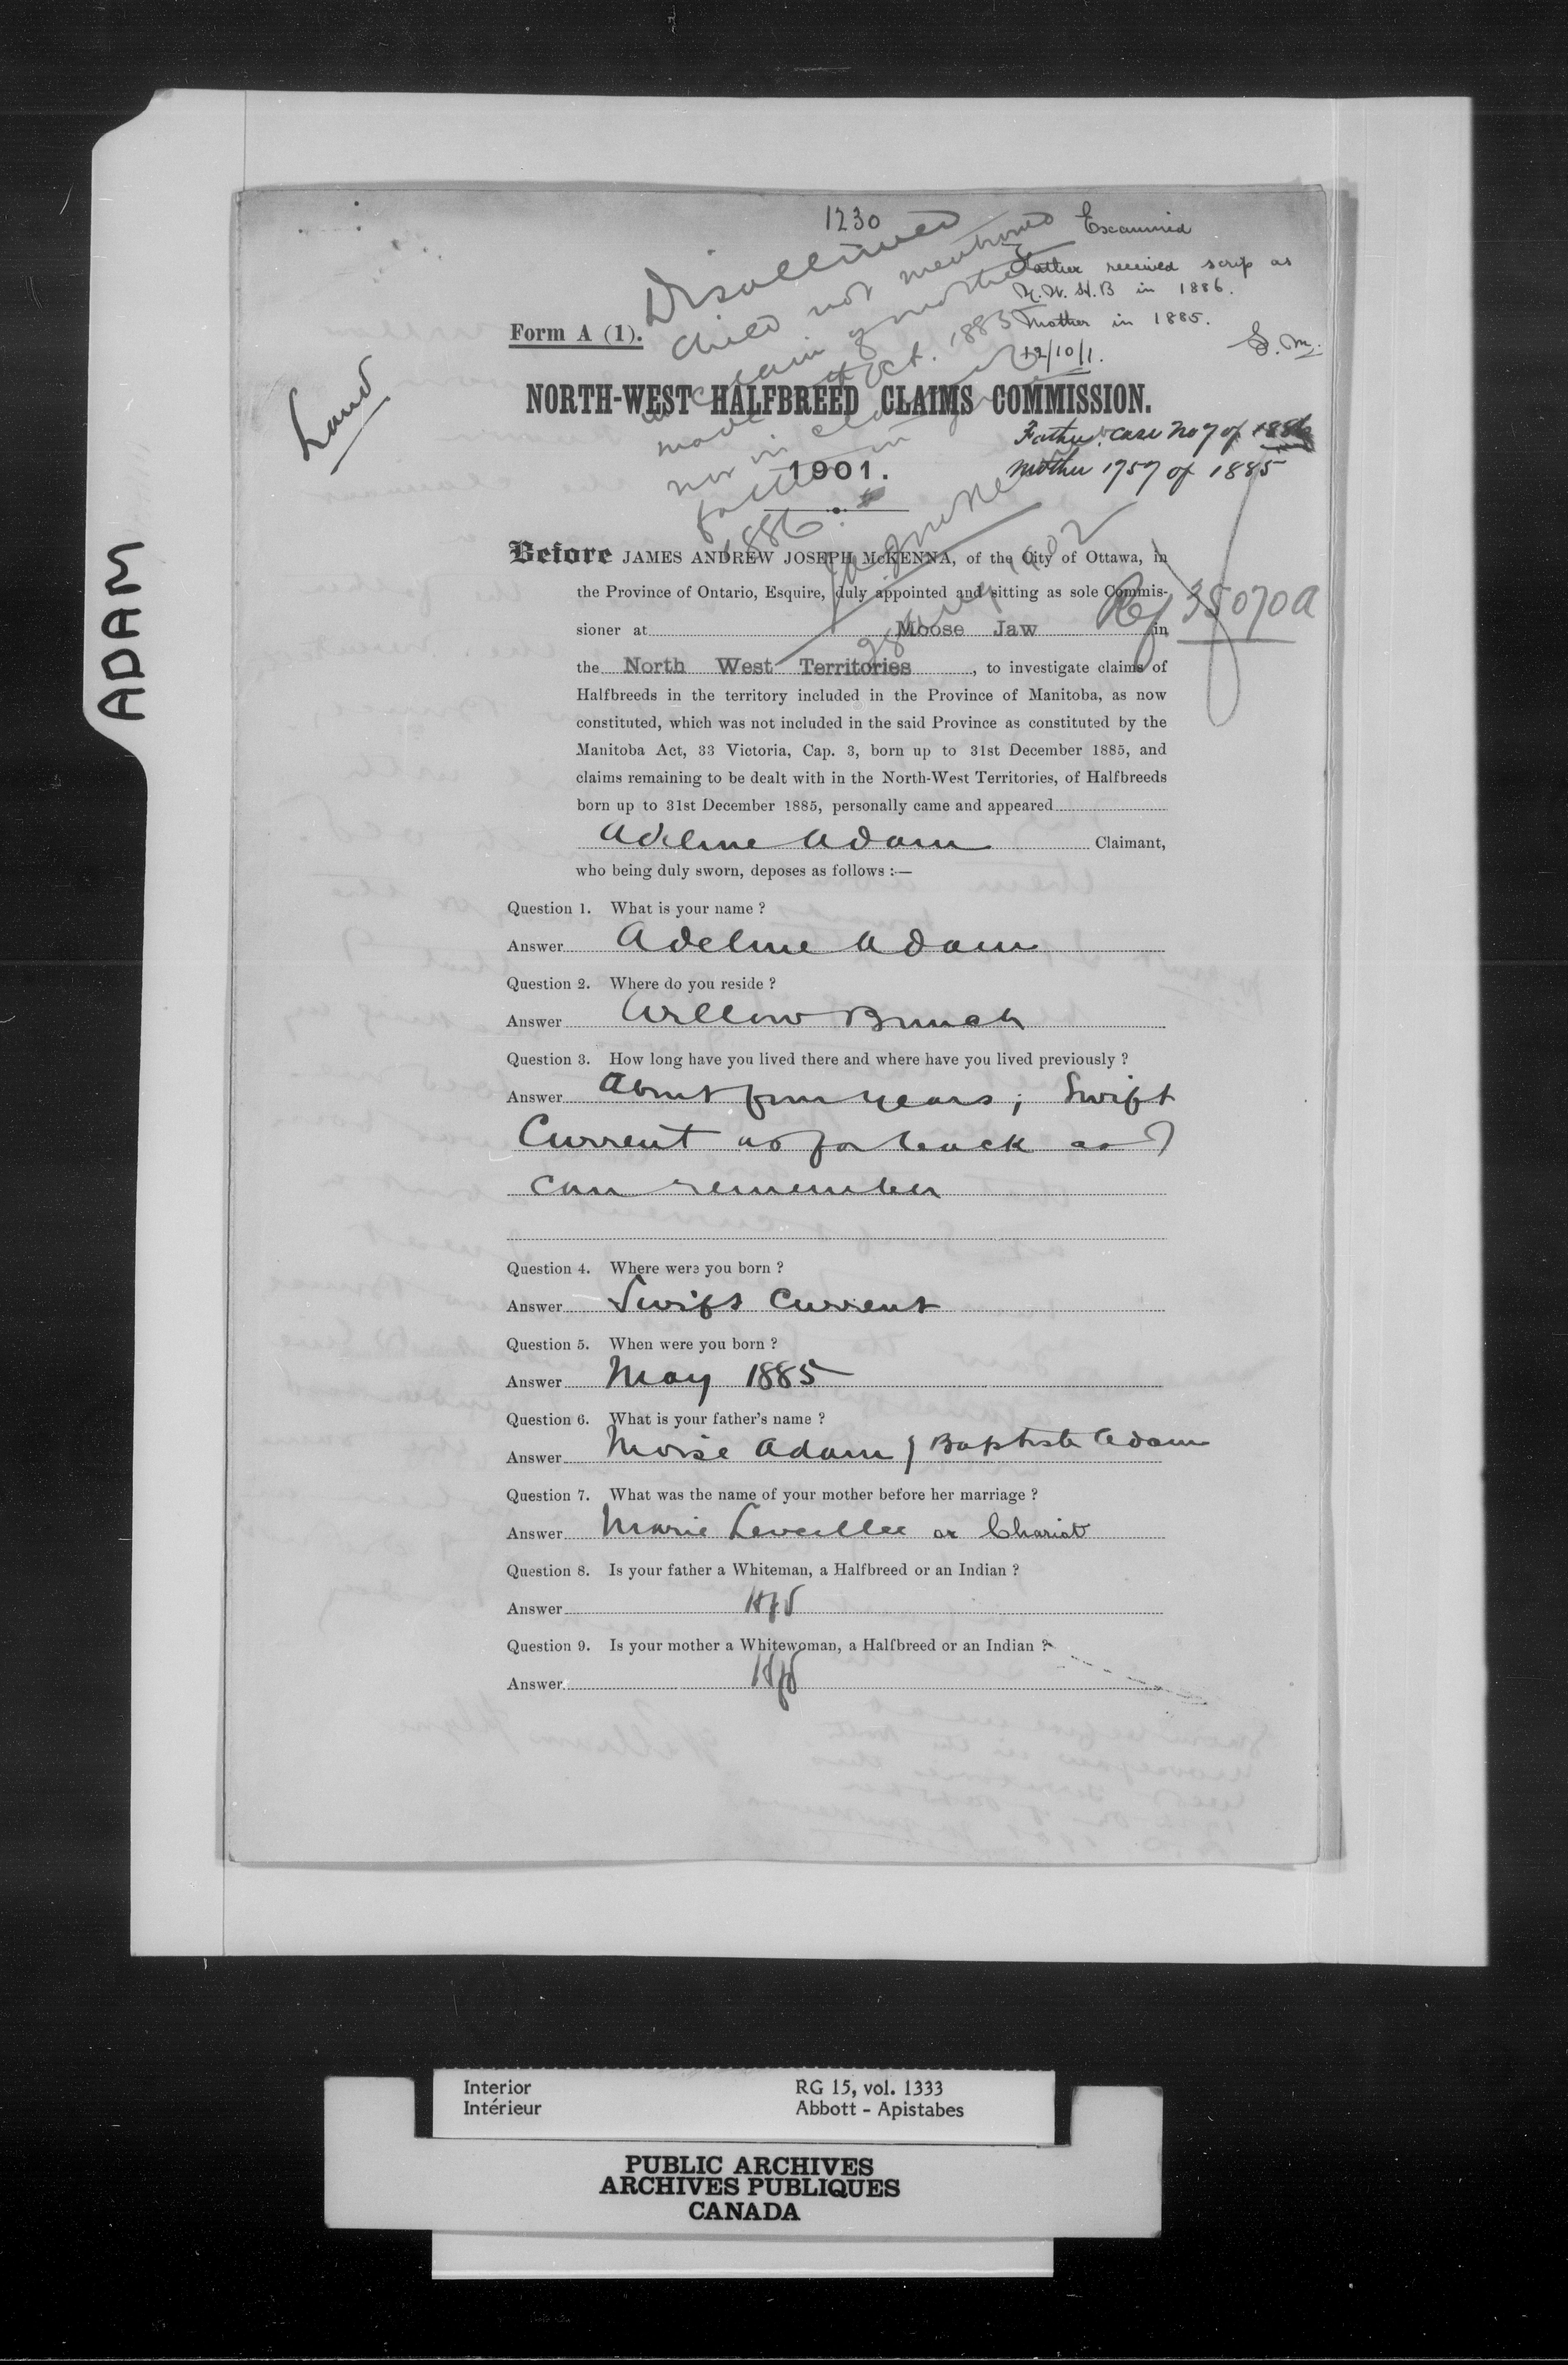 ADAM
1230
Disallowed
child not mentioned
in claim of mother
made Oct. 1885
nor in claim of
father in
1886.
Examined
Father received scrip as
N.W.H.B in 1886.
Mother in 1885.
12/10/1.
Form A (1).
Land
NORTH-WEST HALFBREED CLAIMS COMMISSION.
Father case No 7 of 1886
Mother 1757 of 1885
1901.
1902
Before JAMES ANDREW JOSEPH McKENNA, of the City of Ottawa, in
the Province of Ontario, Esquire, duly appointed and sitting as sole Commis-
sioner at Moose Jaw in
Ref 35070a
the North West Territories, to investigate claims of
Halfbreeds in the territory included in the Province of Manitoba, as now
constituted, which was not included in the said Province as constituted by the
Manitoba Act, 33 Victoria, Cap. 3, born up to 31st December 1885, and
claims remaining to be dealt with in the North-West Territories, of Halfbreeds
born up to 31st December 1885, personally came and appeared
Adeline Adam Claimant,
who being duly sworn, deposes as follows :—
Question 1. What is your name ?
Answer Adeline Adam
Question 2. Where do you reside ?
Answer Willow Bunch
Question 3. How long have you lived there and where have you lived previously ?
Answer About four years; Swift
Current as far back as I
can remember
Question 4. Where were you born ?
Answer Swift Current
Question 5. When were you born ?
Answer May 1885
Question 6. What is your father's name ?
Answer Moise Adam / Baptiste Adam
Question 7. What was the name of your mother before her marriage ?
Answer Marie Leveillee or Chariot
Question 8. Is your father a Whiteman, a Halfbreed or an Indian ?
Answer
Question 9. Is your mother a Whitewoman, a Halfbreed or an Indian ?
Answer
Interior RG 15, vol. 1333
Intérieur Abbott - Apistabes
PUBLIC ARCHIVES
ARCHIVES PUBLIQUES
CANADA